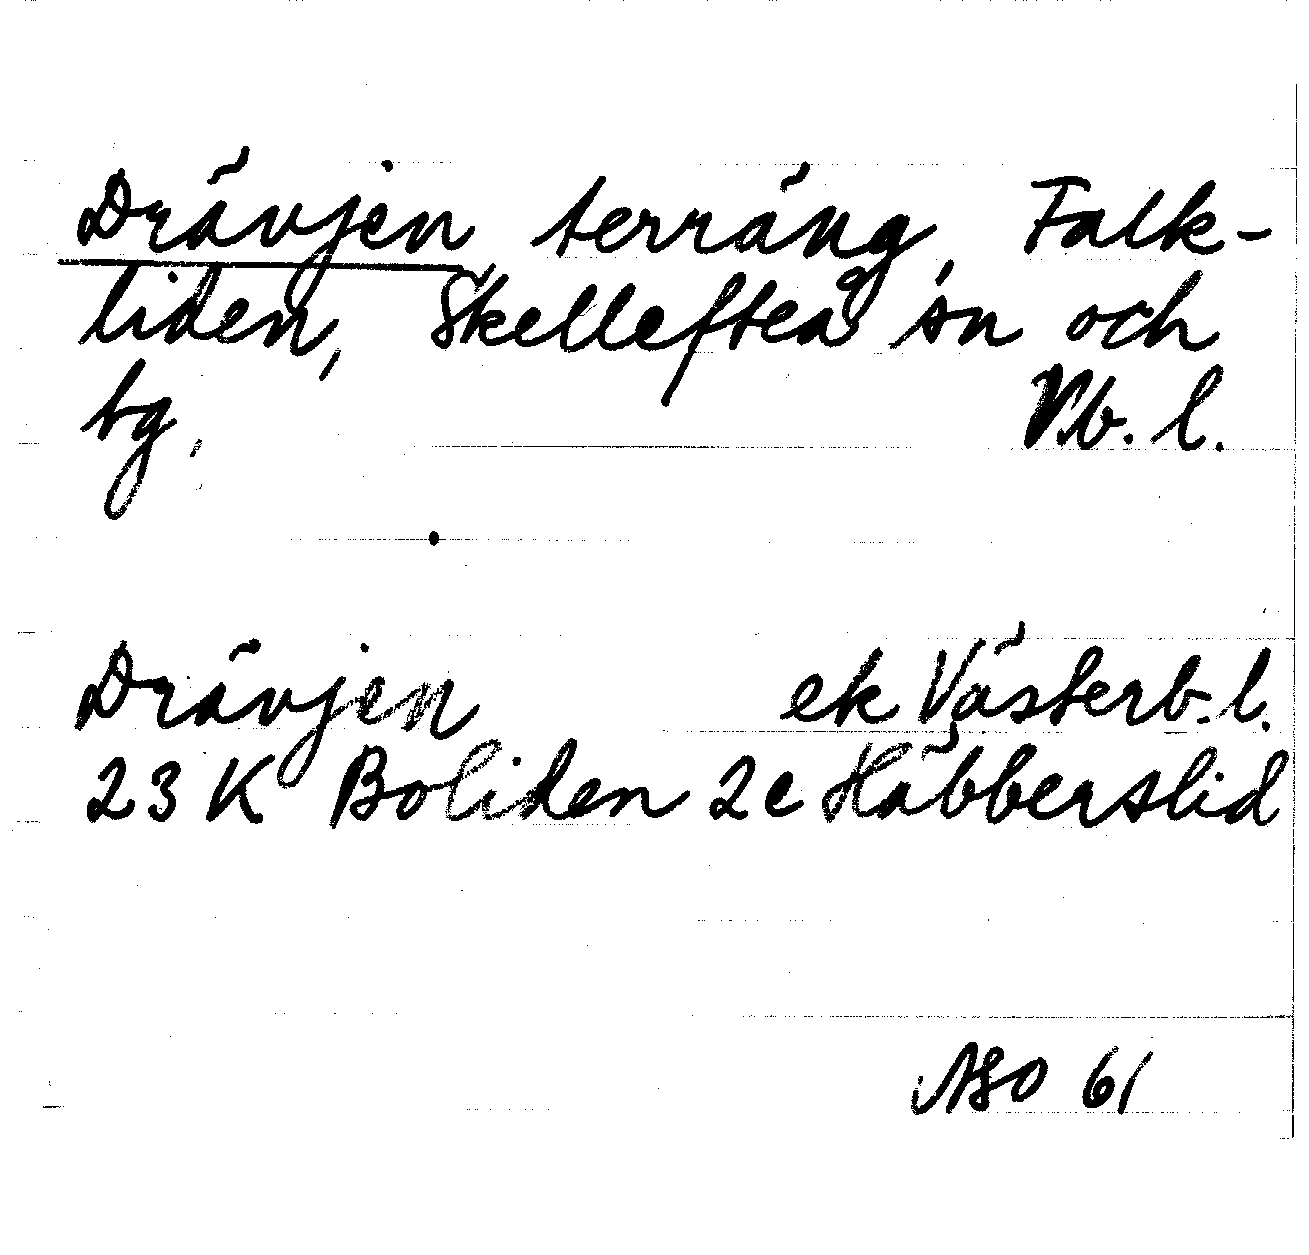 Drävjen, terräng, Falk-
liden, Skellefteå sn och
tg, Vb. l.
Drävjen ek Västerb. l.
23 K Boliden 2 c Häbberslid
ASO 61